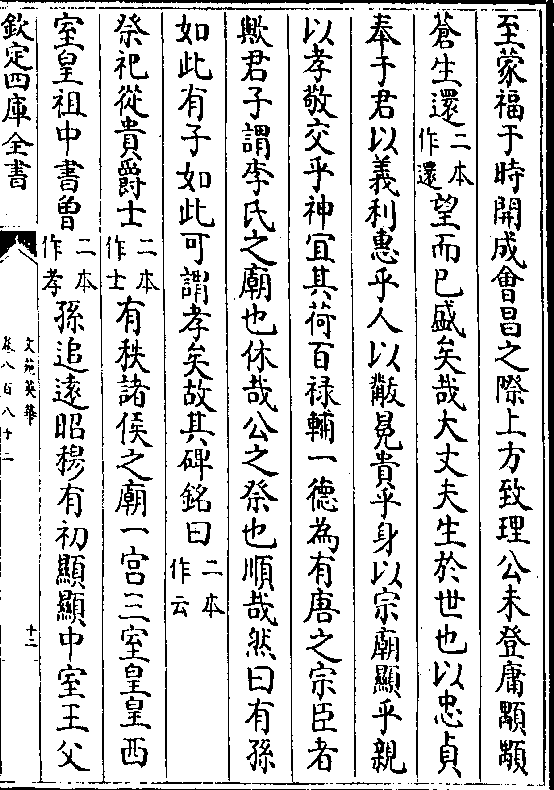 至蒙福于時開成會昌之際上方致理公未登庸顒顒
蒼生還二本作還望而已盛矣哉大丈夫生於世也以忠貞
奉于君以義利惠乎人以黻冕貴乎身以宗廟顯乎親
以孝敬交乎神宜其荷百禄輔一德為有唐之宗臣者
歟君子謂李氏之廟也休哉公之祭也順哉然曰有孫
如此有子如此可謂孝矣故其碑銘曰二本作云
祭祀從貴爵士二本作士有秩諸侯之廟一宫三室皇皇西
室皇祖中書曾二本作孝孫追遠昭穆有初顯顯中室王父
欽定四庫全書
文苑英華
卷八百八十二
十二